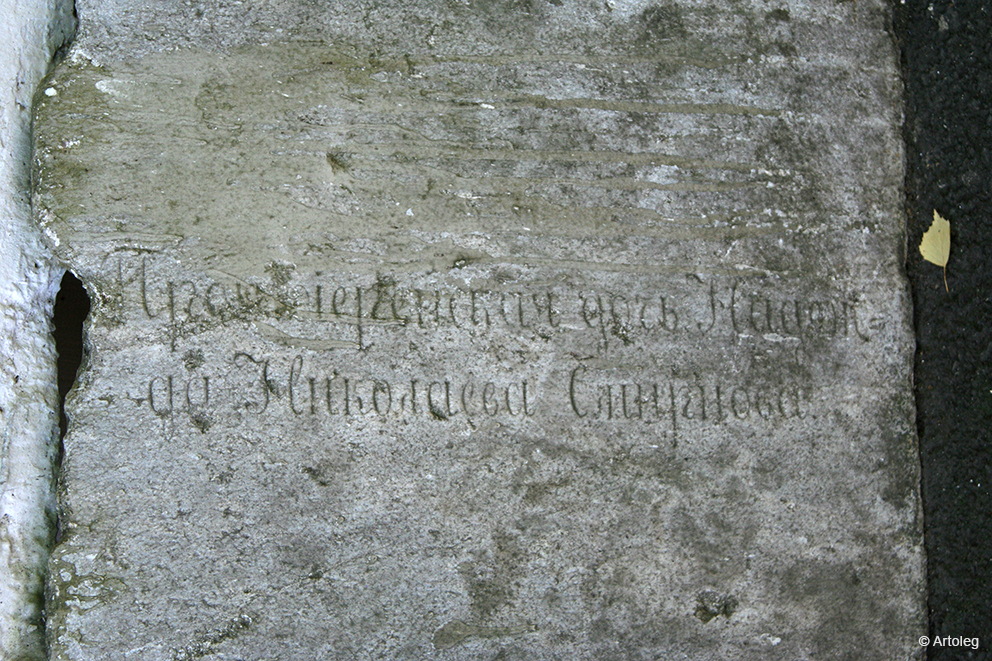 Протоиерейская дочь Надеж-
да Николаева Смирнова.
© Artoleg